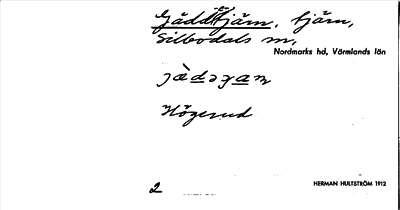 Gäddtjärn, tjärn,
Silbodals sn,
Nordmarks hd, Värmlands län
Högerud
2
HERMAN HULTSTRÖM 1912